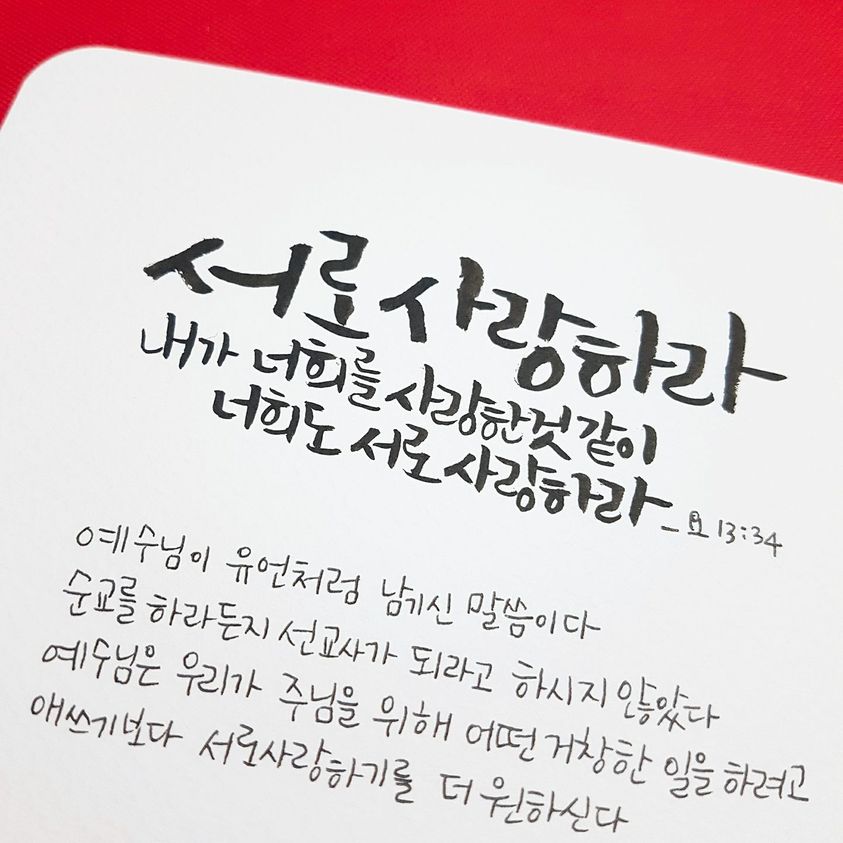 서로 사랑하라
내가 너희를 사랑한것 같이
너희도 서로 사랑하라_요 13:34
예수님이 유언처럼 남기신 말씀이다
순교를 하라든지 선교사가 되라고 하시지 않았다
예수님은 우리가 주님을 위해 어떤 거창한 일을 하려고
애쓰기보다 서로사랑하기를 더 원하신다